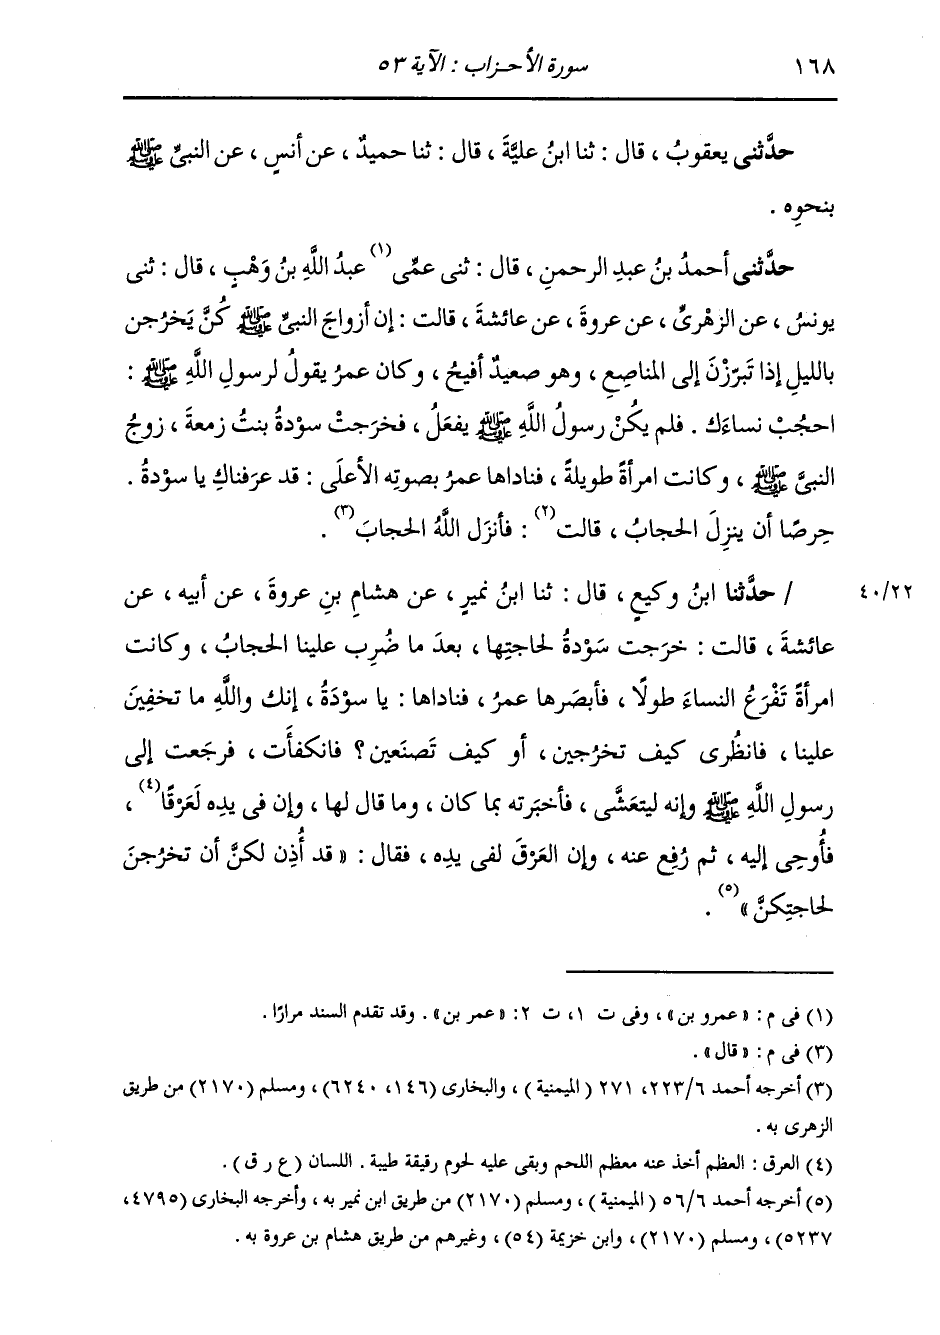 ١٦٨ سورة الأحزاب : الآية ٥٣
حدَّثنى يعقوبُ ، قال : ثنا ابنُ عليَّةَ ، قال : ثنا حميدٌ ، عن أنسٍ ، عن النبيِّ ﷺ
بنحوِه .
حدَّثنى أحمدُ بنُ عبدِ الرحمنِ ، قال : ثنى عمِّى(١) عبدُ اللَّهِ بنُ وَهْبٍ ، قال : ثنى
يونسُ ، عن الزهْرىِّ ، عن عروةَ ، عن عائشةَ ، قالت : إن أزواجَ النبيِّ ﷺ كُنَّ يَخرُجن
بالليلِ إذا تَبرّزْنَ إلى المناصِعِ ، وهو صعيدٌ أفيحُ ، وكان عمرُ يقولُ لرسولِ اللَّهِ ﷺ :
احجُبْ نساءَك . فلم يكُنْ رسولُ اللَّهِ ﷺ يفعَلُ ، فخرَجتْ سوْدةُ بنتُ زمعةَ ، زوجُ
النبيِّ ﷺ ، وكانت امرأةً طويلةً ، فناداها عمرُ بصوتِه الأعلَى : قد عرَفناكِ يا سوْدةُ .
حِرصًا أن ينزِلَ الحجابُ ، قالت(٢) : فأنزَل اللَّهُ الحجابَ(٣) .
٤٠/٢٢ / حدَّثنا ابنُ وكيعٍ ، قال : ثنا ابنُ نميرٍ ، عن هشامِ بنِ عروةَ ، عن أبيه ، عن
عائشةَ ، قالت : خرَجت سَوْدةُ لحاجتِها ، بعدَ ما ضُرِب علينا الحجابُ ، وكانت
امرأةً تَفْرَعُ النساءَ طولًا ، فأبصَرها عمرُ ، فناداها : يا سوْدَةُ ، إنك واللَّهِ ما تخفِينَ
علينا ، فانظُرى كيف تخرُجين ، أو كيف تَصنَعين ؟ فانكفأَت ، فرجَعت إلى
رسولِ اللَّهِ ﷺ وإنه ليتعَشَّى ، فأخبَرته بما كان ، وما قال لها ، وإن فى يدِه لَعَرْقًا(٤) ،
فأُوحِى إليه ، ثم رُفِع عنه ، وإن العَرْقَ لفى يدِه ، فقال : « قد أُذِن لكنَّ أن تخرُجنَ
لحاجتِكنَّ »(٥) .
(١) فى م : « عمرو بن » ، وفى ت ١، ت ٢: « عمر بن » . وقد تقدم السند مرارًا .
(٣) فى م : « قال » .
(٣) أخرجه أحمد ٢٢٣/٦، ٢٧١ ( الميمنية ) ، والبخارى (١٤٦، ٦٢٤٠) ، ومسلم (٢١٧٠) من طريق
الزهرى به .
(٤) العرق : العظم أخذ عنه معظم اللحم وبقى عليه لحوم رقيقة طيبة . اللسان ( ع ر ق ) .
(٥) أخرجه أحمد ٥٦/٦ ( الميمنية ) ، ومسلم (٢١٧٠) من طريق ابن نمير به ، وأخرجه البخارى (٤٧٩٥،
٥٢٣٧) ، ومسلم (٢١٧٠) ، وابن خزيمة (٥٤) ، وغيرهم من طريق هشام بن عروة به .